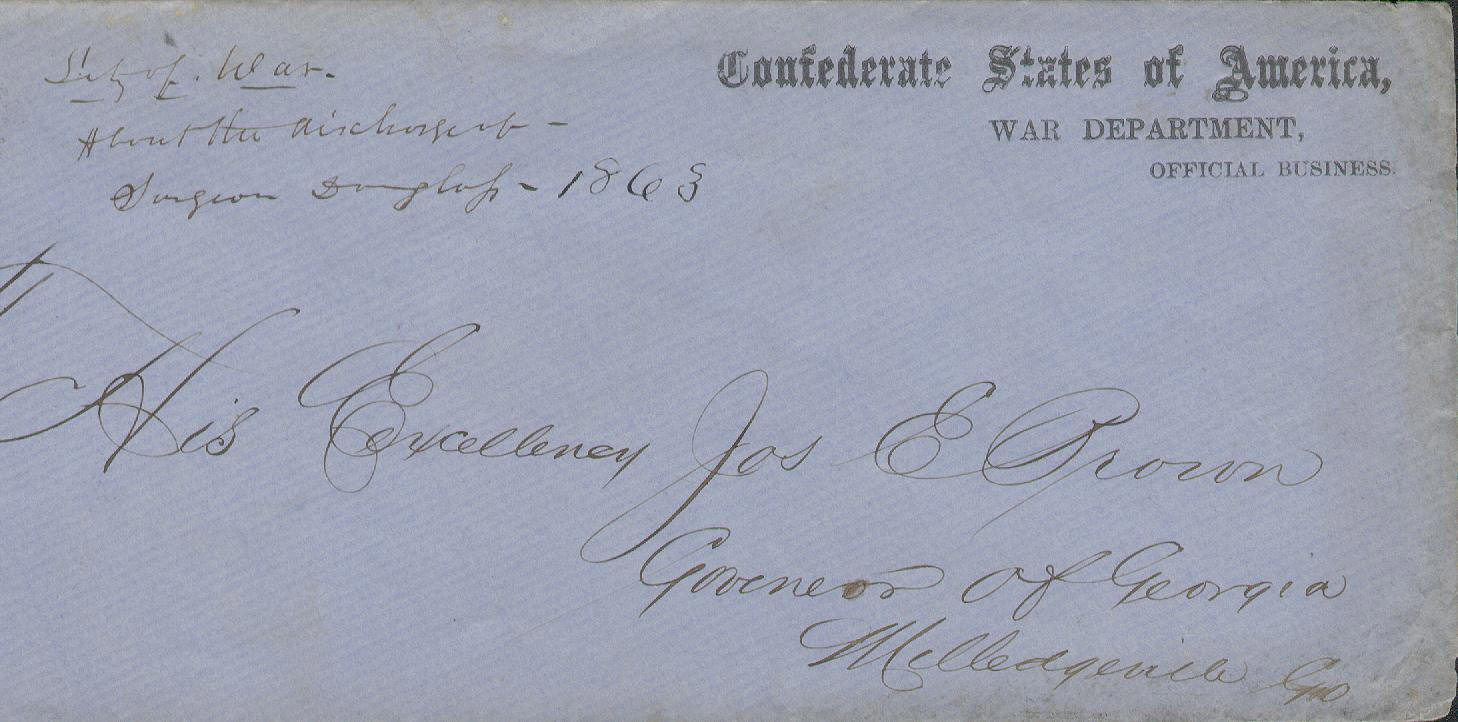 Secty of War.
About the discharge of -
Surgeon Douglass - 1863
Confederate States of America,
WAR DEPARTMENT,
OFFICIAL BUSINESS.
His Excellency Jos E Brown
Governor of Georgia
Milledgeville Ga